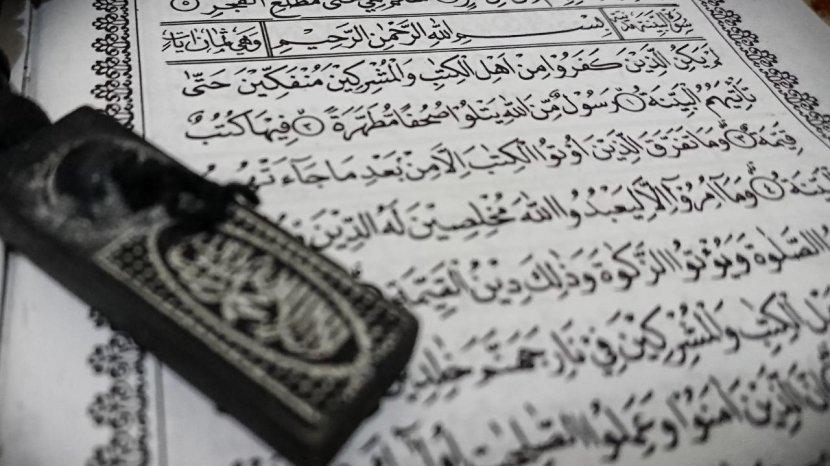 حَتّٰى مَطْلَعِ الْفَجْرِ
سُوْرَةُ الْبَيِّنَةِ مَدَنِيَّةٌ بِسْمِ اللهِ الرَّحْمٰنِ الرَّحِيْمِ وَهِيَ ثَمَانُ اٰيَاتٍ
لَمْ يَكُنِ الَّذِيْنَ كَفَرُوْا مِنْ اَهْلِ الْكِتٰبِ وَالْمُشْرِكِيْنَ مُنْفَكِّيْنَ حَتّٰى
تَأْتِيَهُمُ الْبَيِّنَةُ ۙ ١ رَسُوْلٌ مِّنَ اللهِ يَتْلُوْا صُحُفًا مُّطَهَّرَةً ۙ ٢ فِيْهَا كُتُبٌ
قَيِّمَةٌ ۗ ٣ وَمَا تَفَرَّقَ الَّذِيْنَ اُوْتُوا الْكِتٰبَ اِلَّا مِنْۢ بَعْدِ مَا جَآءَتْهُمُ
الْبَيِّنَةُ ۗ ٤ وَمَآ اُمِرُوْٓا اِلَّا لِيَعْبُدُوا اللهَ مُخْلِصِيْنَ لَهُ الدِّيْنَ
الصَّلٰوةَ وَيُؤْتُوا الزَّكٰوةَ وَذٰلِكَ دِيْنُ الْقَيِّمَةِ
اَهْلِ الْكِتٰبِ وَالْمُشْرِكِيْنَ فِيْ نَارِ جَهَنَّمَ خٰلِدِيْنَ
الَّذِيْنَ اٰمَنُوْا وَعَمِلُوا الصّٰلِحٰتِ